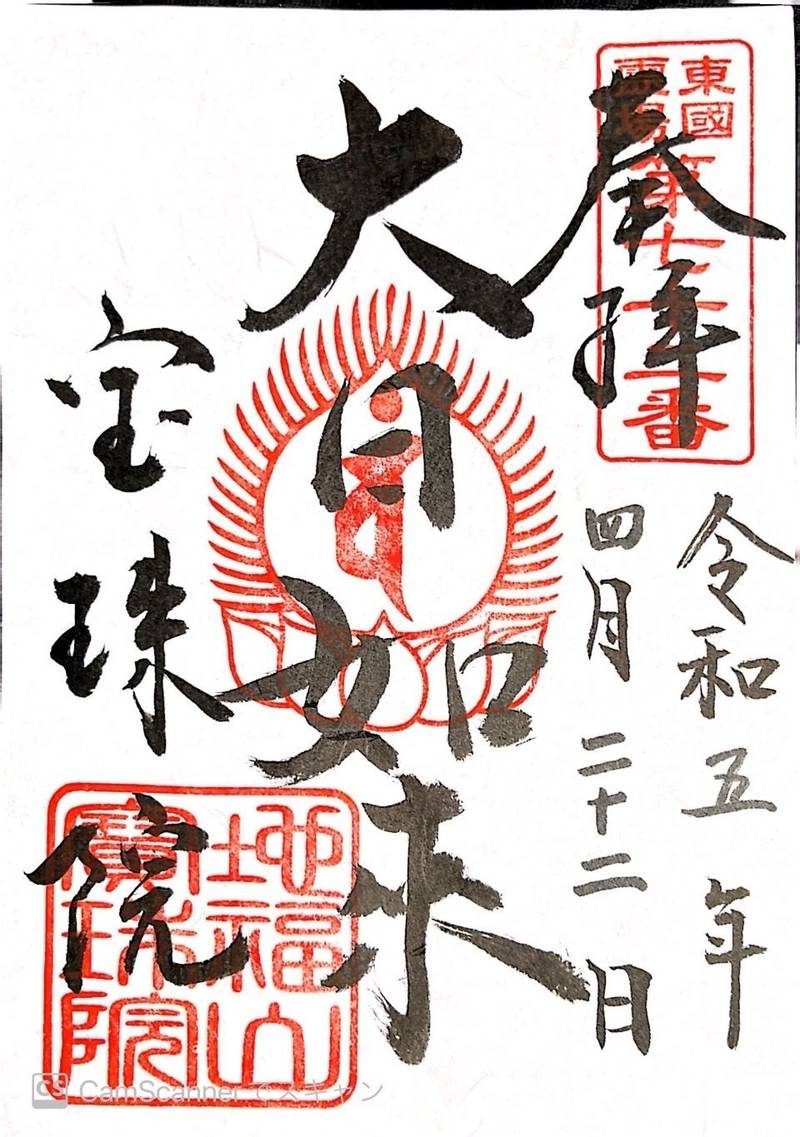 東國
霊場
第七十一番
奉拝
令和五年
四月二十二日
大日如来
宝珠院
地福山
寶珠院
CS CamScanner でスキャン